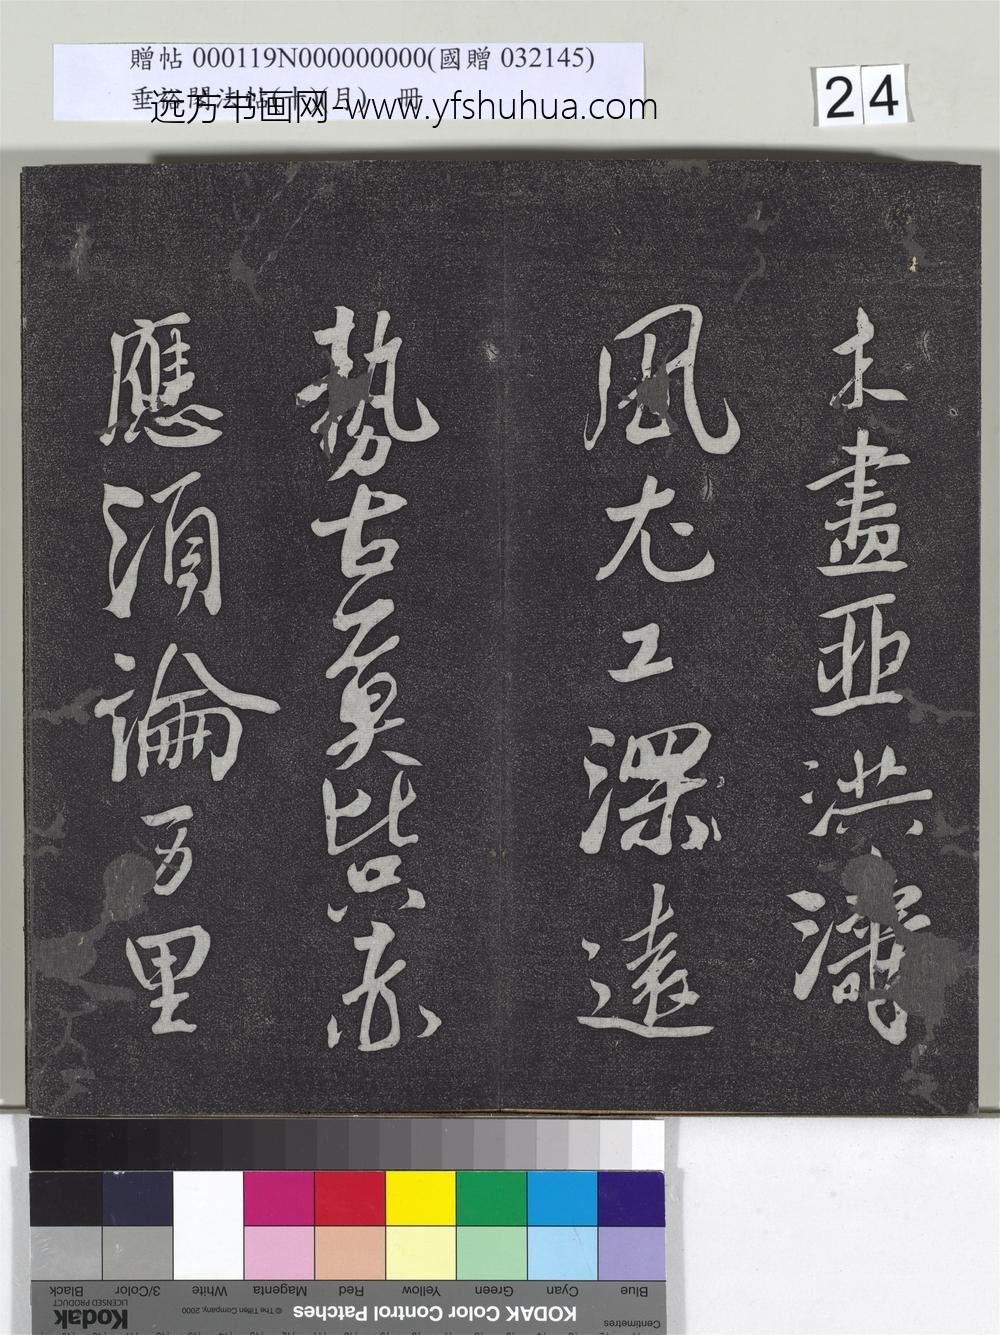 贈帖 000119N000000000(國贈 032145)
远方书画网-www.yfshuhua.com
24
木盡亞洪濤
風尤工深遠
勢古莫比
應須論万里
Blue Cyan Green Yellow Red Magenta White 3/Color Black
KODAK Color Control Patches
© The Tiffen Company, 2000
Kodak
LICENSED PRODUCT
Centimetres